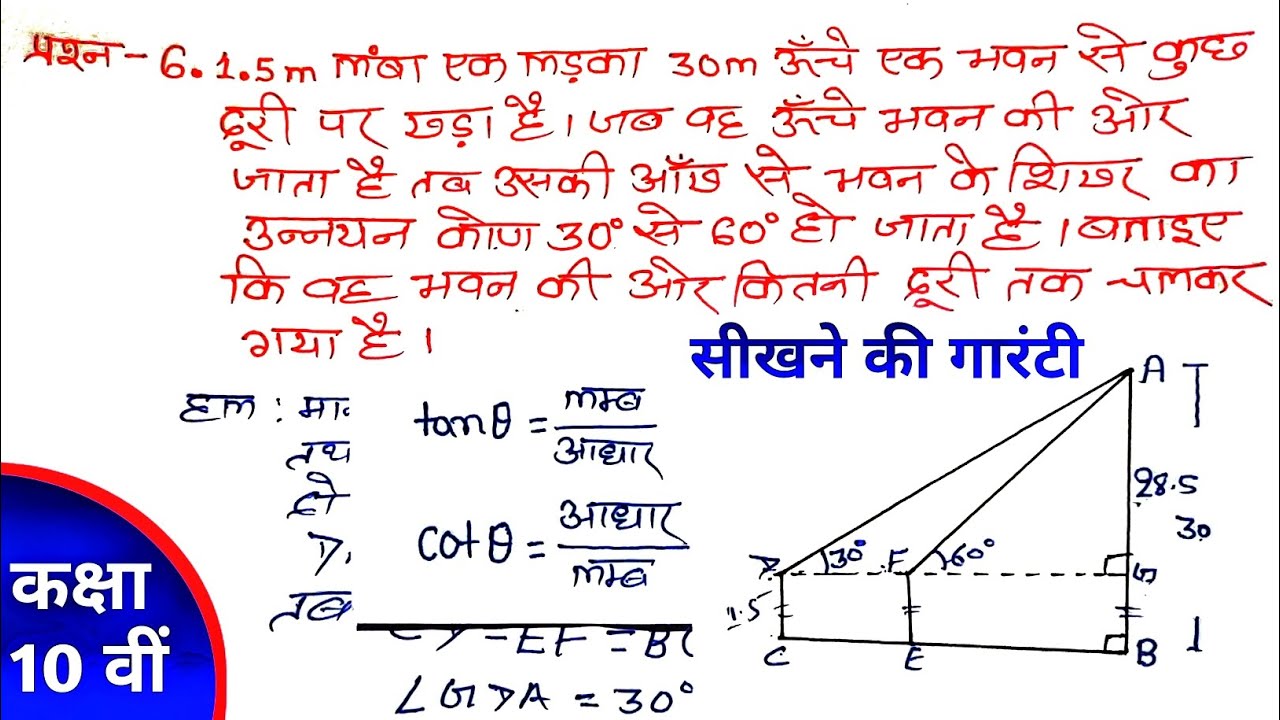 प्रश्न - 6. 1.5m लंबा एक लड़का 30m ऊँचे एक भवन से कुछ
दूरी पर खड़ा है। जब वह ऊँचे भवन की ओर
जाता है तब उसकी आँख से भवन के शिखर का
उन्नयन कोण 30° से 60° हो जाता है। बताइए
कि वह भवन की ओर कितनी दूरी तक चलकर
गया है।
सीखने की गारंटी
हल : मा
तथ
दो
D,
तब
tanθ = लम्ब / आधार
cotθ = आधार / लम्ब
CD = EF = BG
∠GDA = 30°
A
28.5
30
D 30° F 60° G
1.5
C E B
कक्षा
10 वीं